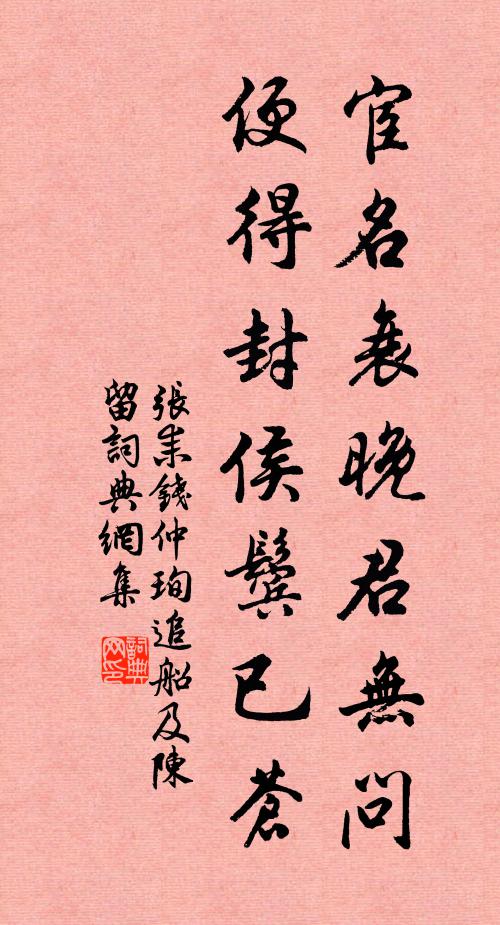 宦名衰晚君無問
便得封侯鬢已蒼
張耒錢仲珣追船及陳
留詞典網集
詞典
网印